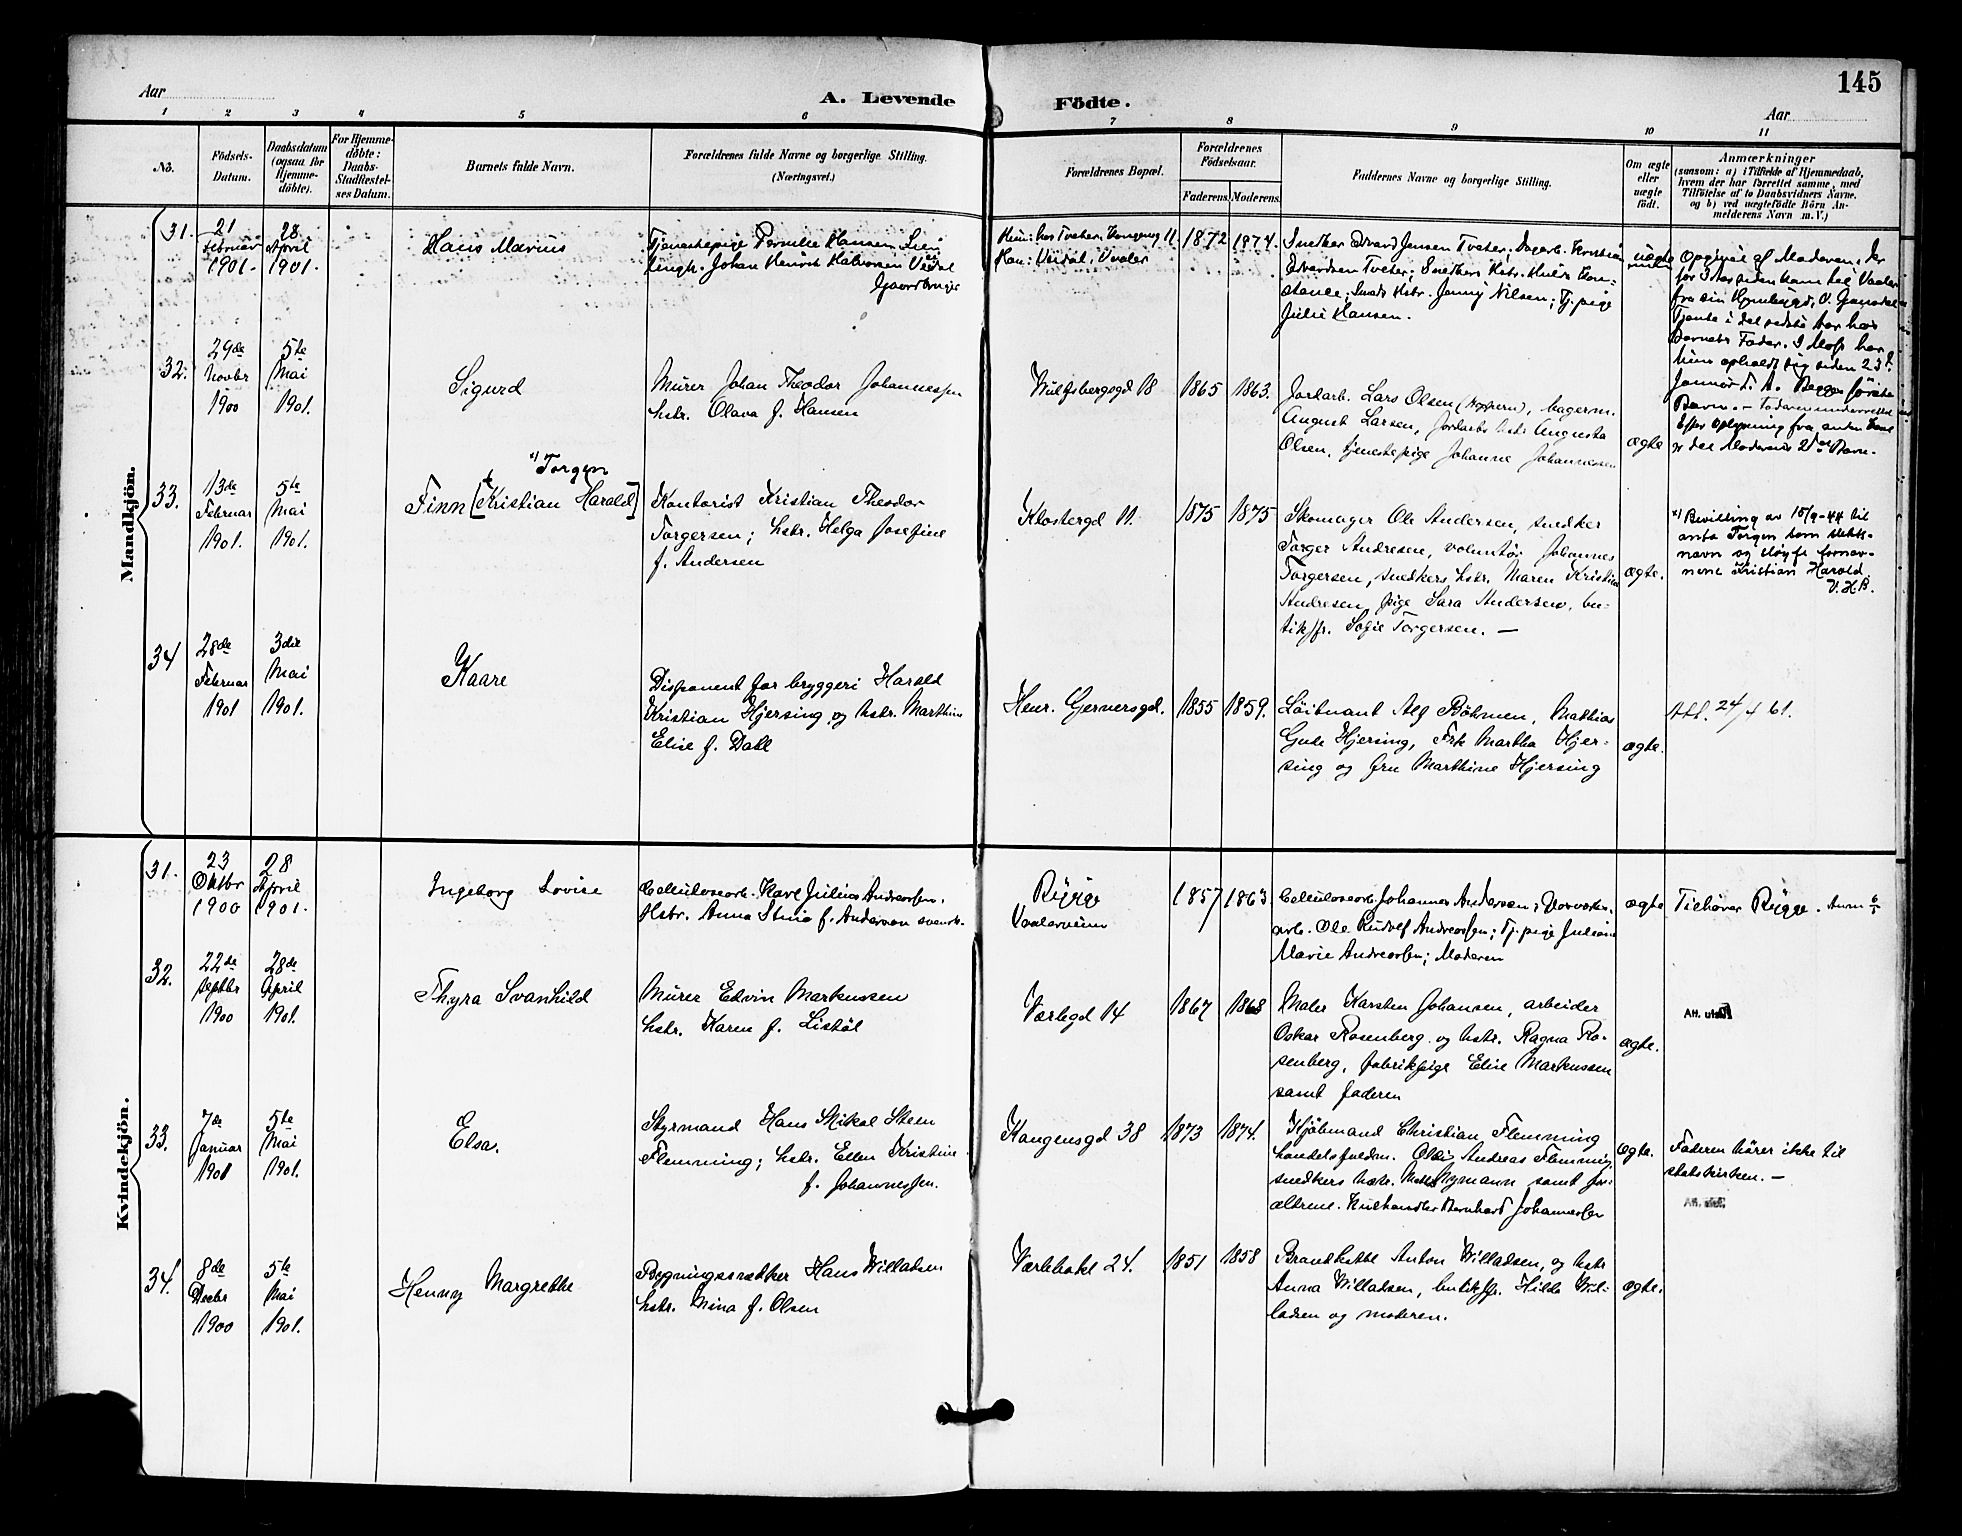 145
Aar
A. Levende
Födte.
Aar
1 2 3 4 5 6 7 8 9 10 11
No.
Födsels-
Datum.
Daabsdatum
(ogsaa for
Hjemme-
döbte).
For Hjemme-
döbte:
Daabs-
Stadfæstel-
ses Datum.
Barnets fulde Navn.
Forældrenes fulde Navne og borgerlige Stilling.
(Næringsvei.)
Forældrenes Bopæl.
Forældrenes
Födselsaar.
Faderens.
Moderens.
Faddernes Navne og borgerlige Stilling.
Om ægte
eller
uægte
födt.
Anmærkninger
(saasom: a) i Tilfælde af Hjemmedaab,
hvem der har forrettet samme, med
Tilföielse af to Daabsvidners Navne,
og b) ved uægtefödte Börn An-
melderens Navn m.V.)
Mandkjön.
31.
21
Februar
1901.
28
April
1901.
Hans Marius
Tjenestepige Pernille Hansen
Ungk. Johan Henrik Halvorsen
Gaardbruger
Hun: hos Tveter, Kongensg 11
Han: Vaaler
1872
1874.
Snedker Edvard Jensen Tveter; Dagarb. Kristian
Edvardsen Tveter; Snedkers Hstr. Hulda Kon-
stance; Hstr. Jenny Nilsen; Tj.pige
Julie Hansen.
uægte
Opgivet af Moderen. Der
for siden kom til Vaaler
fra sin Hjembygd,
Tjente i det sidste Aar hos
Barnets Fader. I Moss har
hun opholdt sig siden 23de
Januar d. A. Begges første
Barn. –
Efter Oplysning fra anden Kant
er det Moderens 2det Barn.
32.
29de
Novbr
1900
5te
Mai
1901.
Sigurd
Murer Johan Theodor Johannessen
hstr. Olava f. Hansen
Wulfsbergsgd 18
1865
1863.
Jordarb. Lars Olsen, bagerm.
August Larsen, Jordarbs hstr Augusta
Olsen, tjenestepige Johanne Johannessen
ægte
33.
13de
Februar
1901.
5te
Mai
1901.
x) Torgen
Finn [Kristian Harald]
Kontorist Kristian Theodor
Torgersen; hstr. Helga Josefine
f. Andersen
Klostergd 11.
1875
1875
Skomager Ole Andersen, snedker
Torger Andresen, voluntør Johannes
Torgersen, snedkers hstr. Maren Kristine
Andresen, pige Sara Andersen, bu-
tikfr. Sofie Torgersen. —
ægte.
x) Bevilling av 15/9-44 til
anta Torgen som slekts-
navn og sløyfe fornav-
nene Kristian Harald
V.H.B.
34
28de
Februar
1901
3die
Mai
1901.
Kaare
Disponent for bryggeri Harald
Kristian Hjersing og hstr. Marthine
Elise f. Dahl
Henr. Gernersgd.
1855
1859.
Løitnant Alf Böhmen, Mathias
Gude Hjersing, Frk Martha Hjer-
sing og fru Marthine Hjersing
ægte.
Att. 24/4 61.
Kvindekjön.
31.
23
Oktbr
1900
28
April
1901.
Ingeborg Lovise
Cellulosearb. Karl Julius Andreassen.
Hstr. Anna Stina f. Anderson svensk.
Rygge
Vaalerveien
1857
1863
Cellulosearb. Johannes Andersen;
arb. Ole Rudolf Andreassen; Tj.pige Juliane
Marie Andreassen; Moderen
ægte
Tilhører Rygge. Anm 6/5
32.
22de
Septbr
1900
28de
April
1901.
Thyra Svanhild
Murer Edvin Markussen
hstr. Karen f. Listøl
Værlegd 14
1867
1868
Maler Karsten Johansen, arbeider
Oskar Rosenberg og hstr. Ragna Ro-
senberg, fabrikpige Elise Markussen
samt faderen
ægte.
Att. utst.
33.
7de
Januar
1901
5te
Mai
1901.
Elsa.
Styrmand Hans Mikal Steen
Flemming; hstr. Ellen Kristine
f. Johannessen.
Kongensgd 38
1873
1874.
Kjøbmand Christian Flemming
handelsfuldm. Andreas Flemming,
snedkers hstr. Nymann samt for-
ældrene. Bernhard Johannessen
ægte.
Faderen hører ikke til
statskirken. –
Att. utst.
34.
8de
Decbr
1900
5te
Mai
1901.
Henny Margrethe
Bygningssnedker Hans Willadsen
hstr. Mina f. Olsen
Værlebakl 24.
1851
1858
Anton Willadsen, og hstr
Anna Willadsen, butikfr. Hilda Wil-
ladsen og moderen.
ægte.